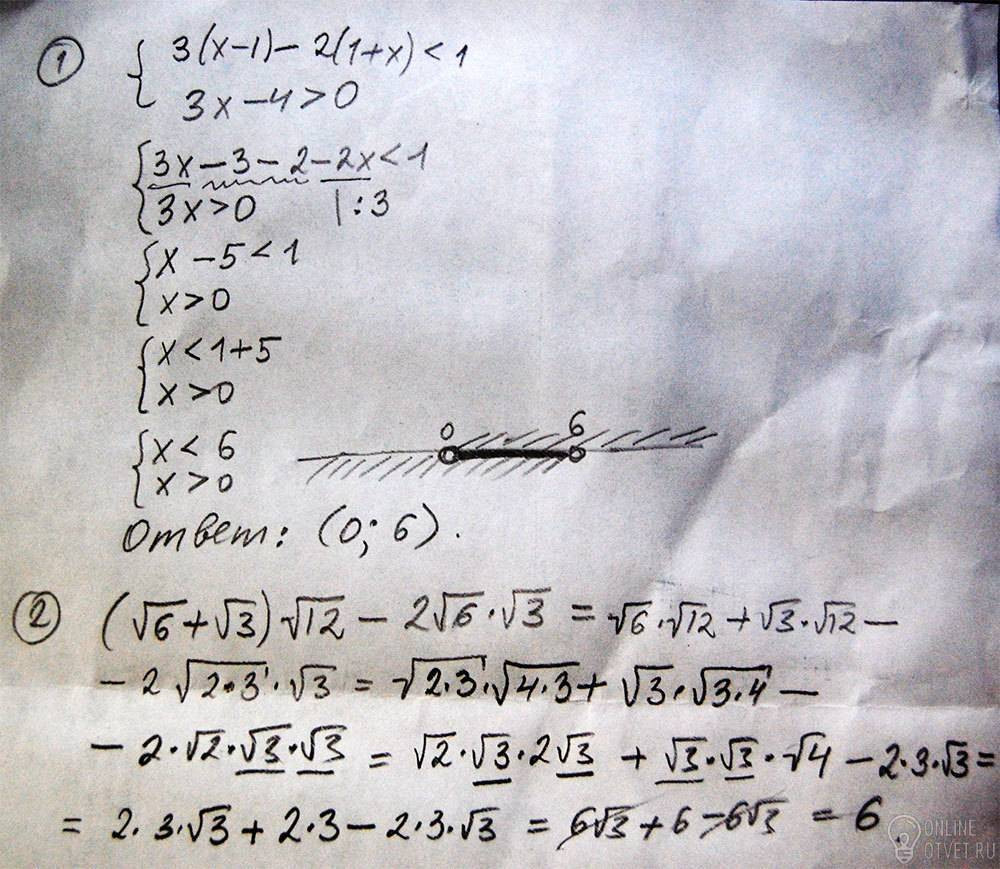 ① { 3(x-1) - 2(1+x) < 1
3x - 4 > 0
{ 3x - 3 - 2 - 2x < 1
3x > 0 | : 3
{ x - 5 < 1
x > 0
{ x < 1+5
x > 0
{ x < 6
x > 0
0 6
Ответ: (0; 6).
② (√6 + √3)√12 - 2√6·√3 = √6·√12 + √3·√12 -
- 2√2·3·√3 = √2·3·√4·3 + √3·√3·4 -
- 2·√2·√3·√3 = √2·√3·2√3 + √3·√3·√4 - 2·3·√3 =
= 2·3·√3 + 2·3 - 2·3·√3 = 6√3 + 6 - 6√3 = 6.
ONLINE
OTVET.RU